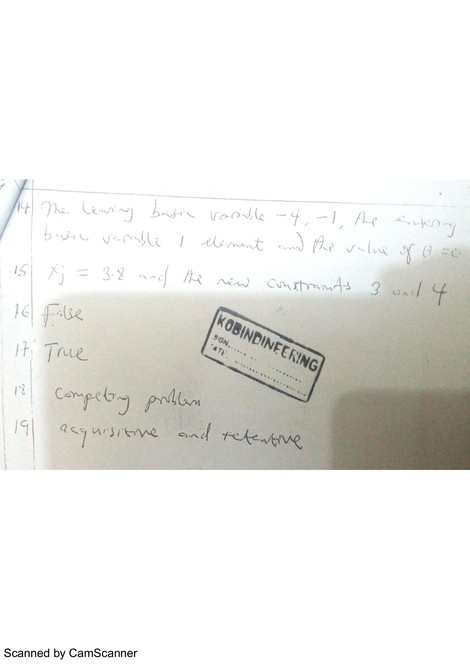 14 The leaving basic variable -4, -1, the entering
basic variable 1 element and the value of θ =
15 Xj = 3.8 and the new constraints 3 and 4
16 False
17 True
18 competing problem
19 acquisitive and retentive
KOBINDINEERING
SIGN
DATE
Scanned by CamScanner